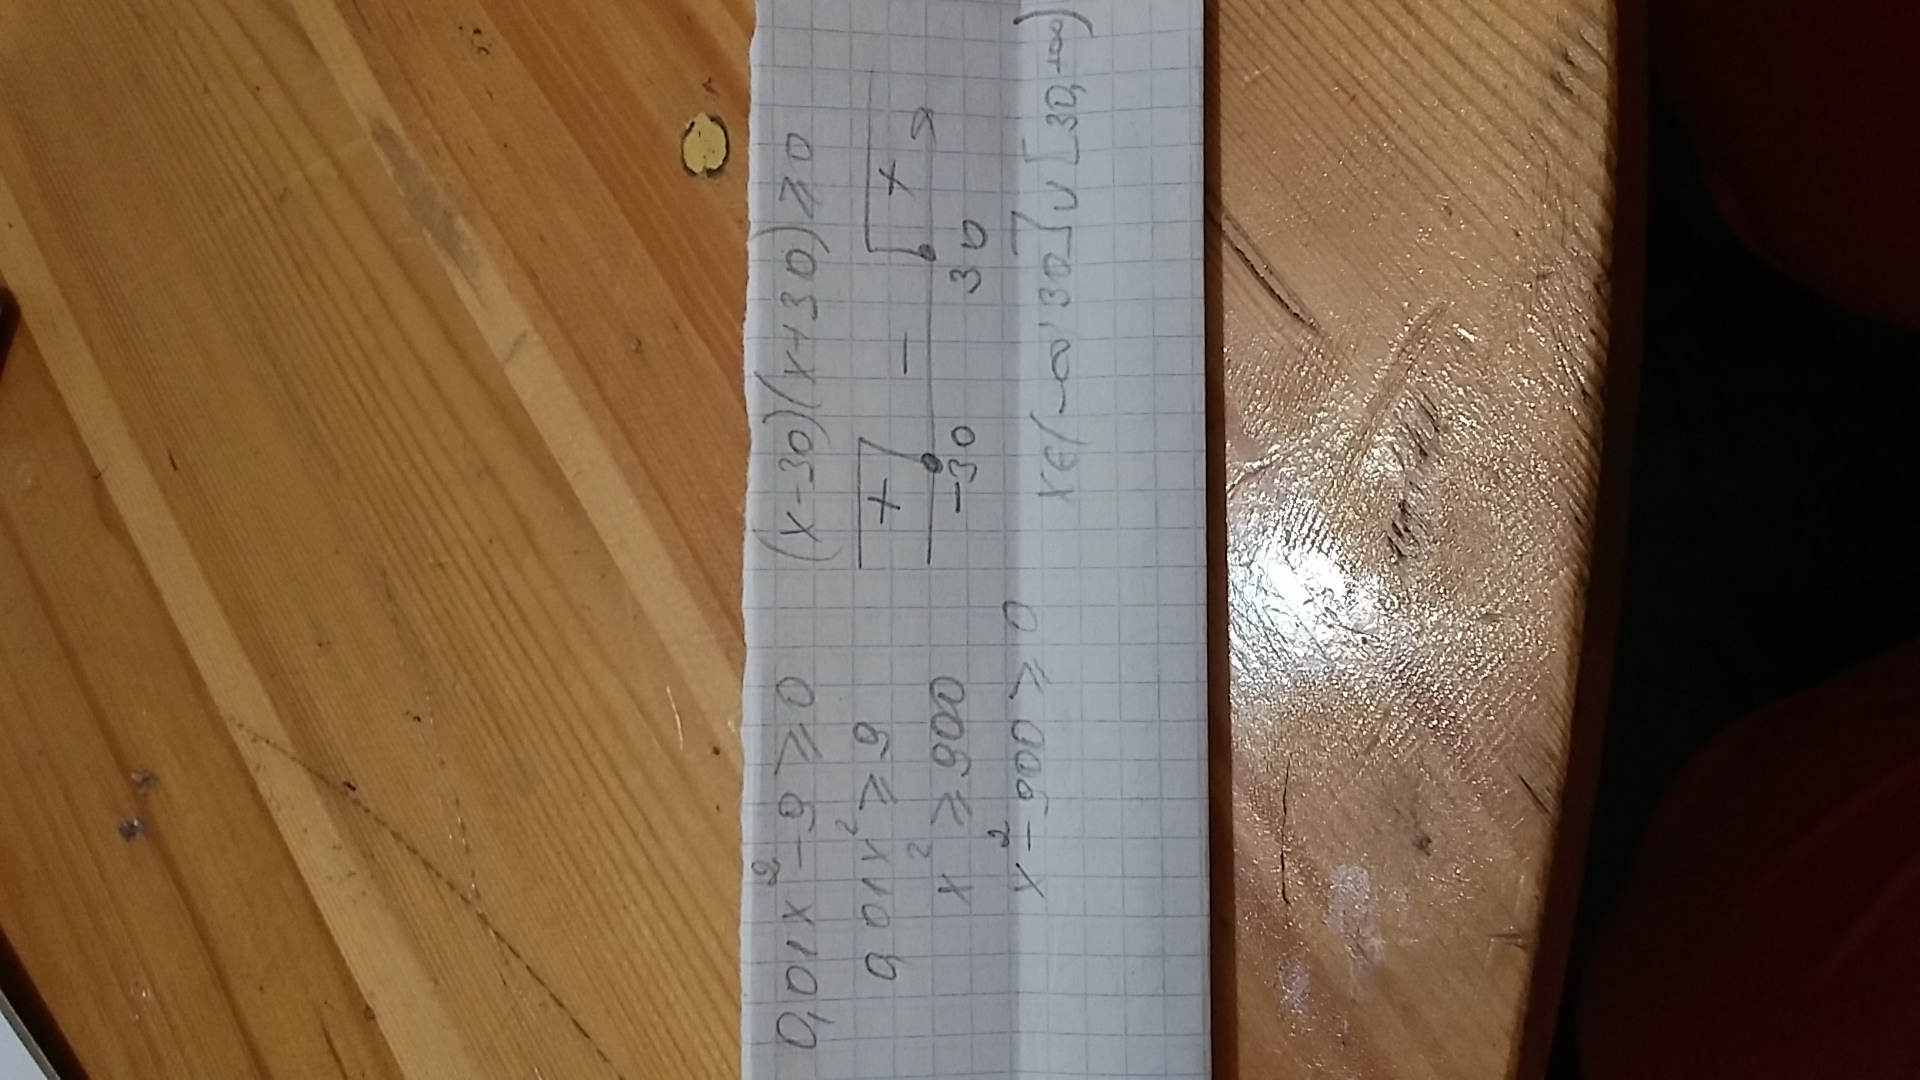 0,01x² - 9 ⩾ 0
0,01x² ⩾ 9
x² ⩾ 900
x² - 900 ⩾ 0
(x-30)(x+30) ⩾ 0
+ - +
-30 30
x∈(-∞; 30]∪[30,+∞)